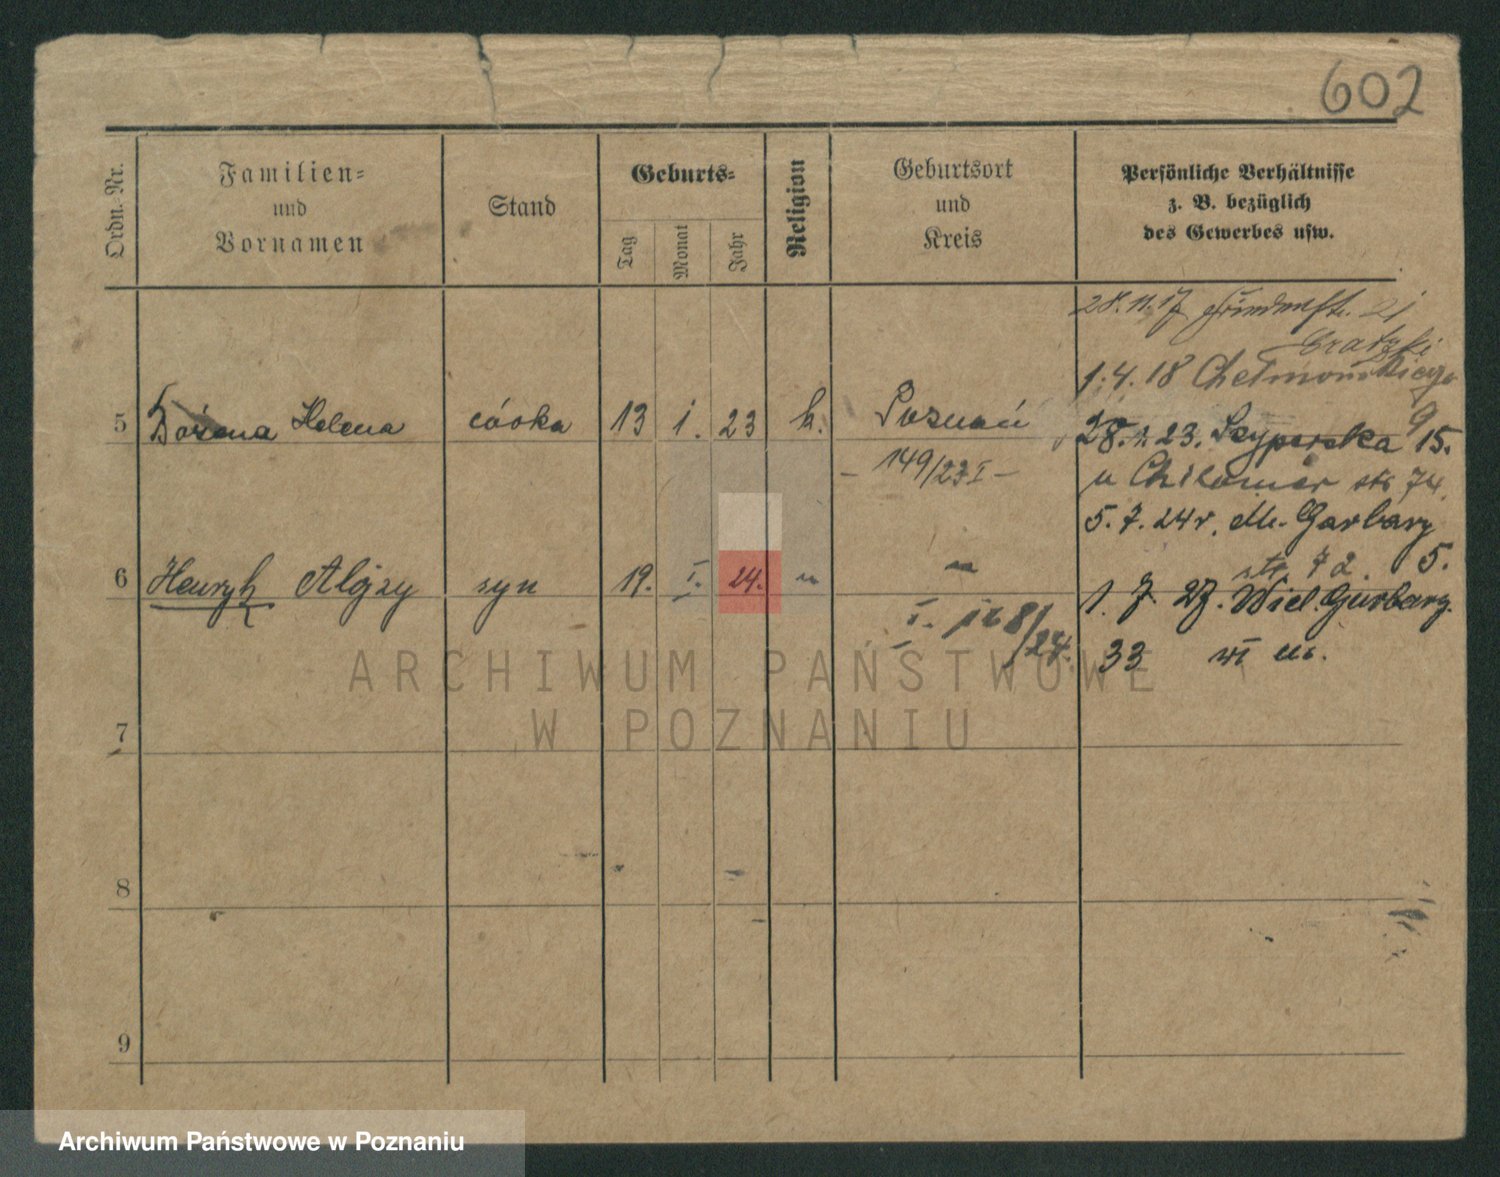 602
Ordn. Nr.
Familien-
und
Vornamen
Stand
Geburts-
Tag
Monat
Jahr
Religion
Geburtsort
und
Kreis
Persönliche Verhältnisse
z. B. bezüglich
des Gewerbes usw.
28.11.17
1.4.18 Chełmońskiego
9
5 Bożena Helena córka 13 i. 23 k. Poznań
149/23 I
28. 23. Szyperska 15.
u str 74.
5.7.24 r. M. Garbary
str. 72. 5.
6 Henryk Alojzy syn 19. I. 24. "
I. 168/24.
1. 7. 27. Wiel. Garbary.
33 m.
7
8
9
ARCHIWUM PAŃSTWOWE
W POZNANIU
Archiwum Państwowe w Poznaniu